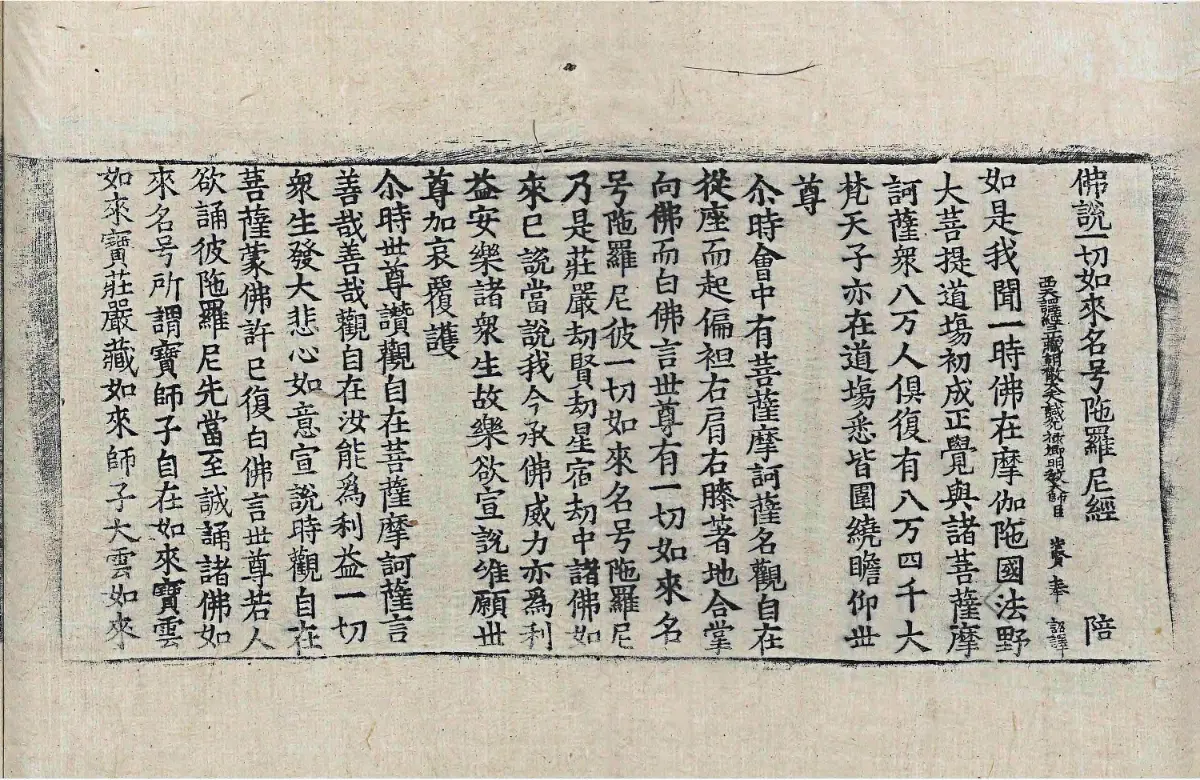 佛說一切如來名号陁羅尼經 陪
西天譯經三藏朝散大夫試光祿卿明教大師臣 法賢 奉 詔譯
如是我聞一時佛在摩伽陁國法野
大菩提道塲初成正覺與諸菩薩摩
訶薩衆八万人俱復有八万四千大
梵天子亦在道塲悉皆圍繞瞻仰世
尊
尒時會中有菩薩摩訶薩名觀自在
從座而起偏袒右肩右膝著地合掌
向佛而白佛言世尊有一切如來名
号陁羅尼彼一切如來名号陁羅尼
乃是莊嚴劫賢劫星宿劫中諸佛如
來已說當說我今承佛威力亦爲利
益安樂諸衆生故樂欲宣說維願世
尊加哀覆護
尒時世尊讚觀自在菩薩摩訶薩言
善哉善哉觀自在汝能爲利益一切
衆生發大悲心如意宣說時觀自在
菩薩蒙佛許已復白佛言世尊若人
欲誦彼陁羅尼先當至誠誦諸佛如
來名号所謂寶師子自在如來寶雲
如來寶莊嚴藏如來師子大雲如來